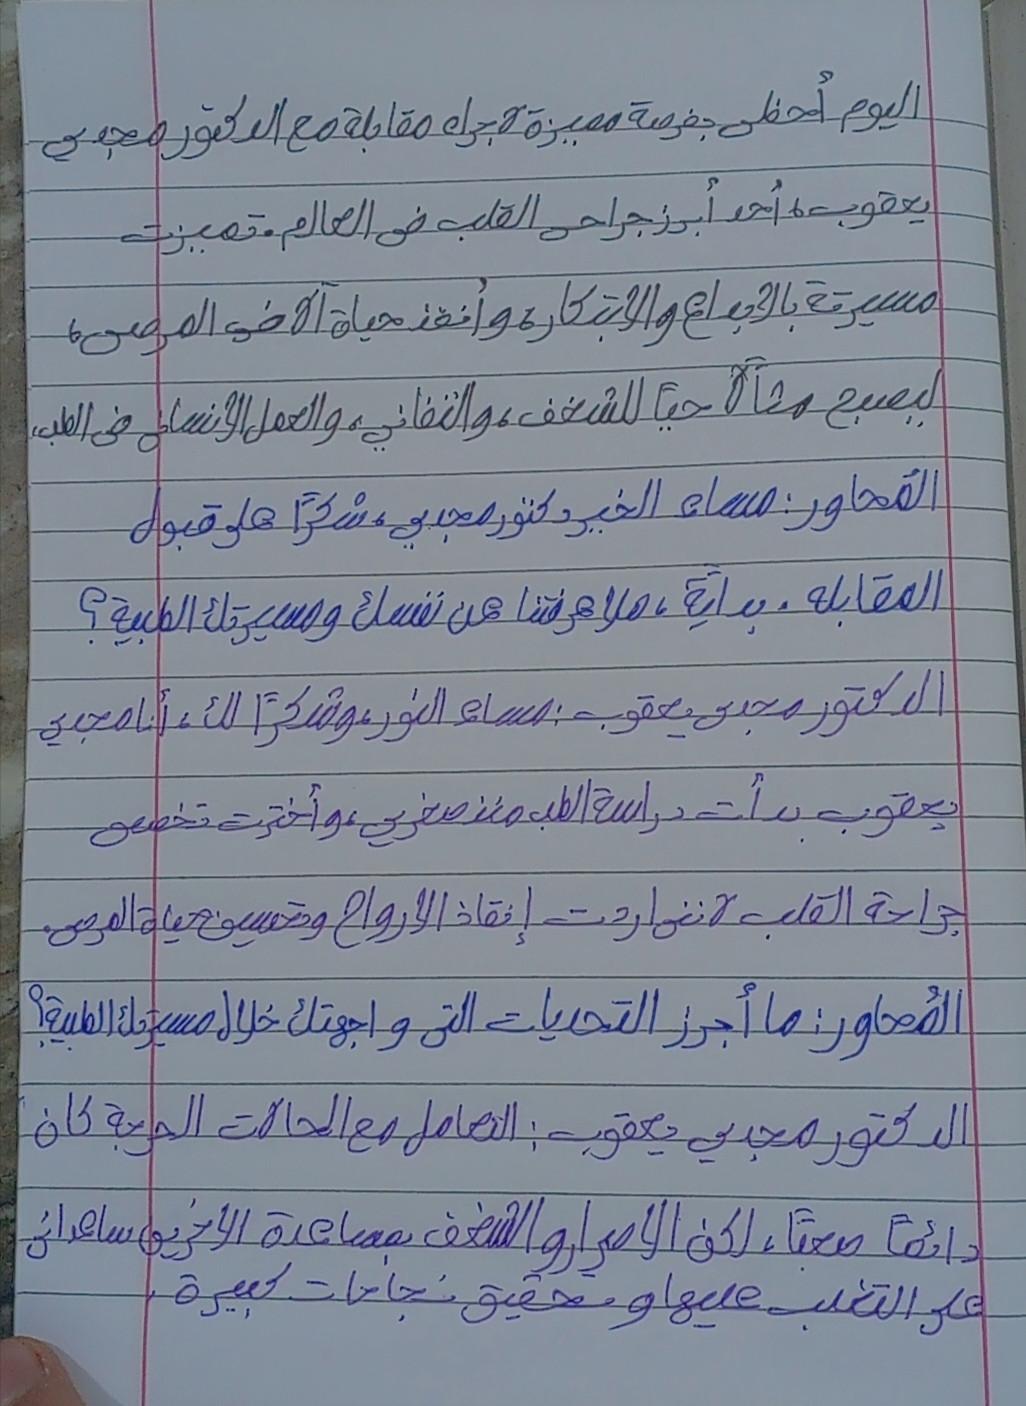 اليوم أحظى بفرصة مميزة لاجراء مقابلة مع الدكتور مجدي
يعقوب، أحد أبرز جراحى القلب فى العالم. تميزت
مسيرتة بالابداع والابتكار، وأنقذ حياة آلاف المرضى،
ليصبح مثآلاً حيًا للشغف، والتفاني، والعمل الأنسانى فى الطب.
المُحاور: مساء الخير دكتور مجدي، شكرًا على قبول
المقابله. بدايًة، هلا عرفتنا عن نفسك ومسيرتك الطبية؟
الدكتور مجدى يعقوب: مساء النور، وشكرًا لك، أنا مجدي
يعقوب بدأت دراسة الطب منذ صغري، وأخترت تخصص
جراحة القلب لاننى اردت إنقاذ الارواح وتحسين حياة المرضى.
المُحاور: ما أبرز التحديات التى واجهتك خلال مسيرتك الطبية؟
الدكتور مجدي يعقوب: التعامل مع الحالات الحرجة كان
دائمًا صعبًا، لكن الاصرار والشغف بمساعدة الاخرين ساعدانى
على التغلب عليها وتحقيق نجاحات كبيرة.